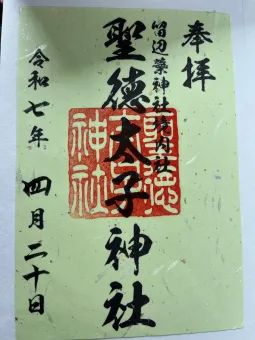 奉拝
留辺蘂神社境内社
聖徳太子神社
聖徳太子神社
令和七年
四月二十日